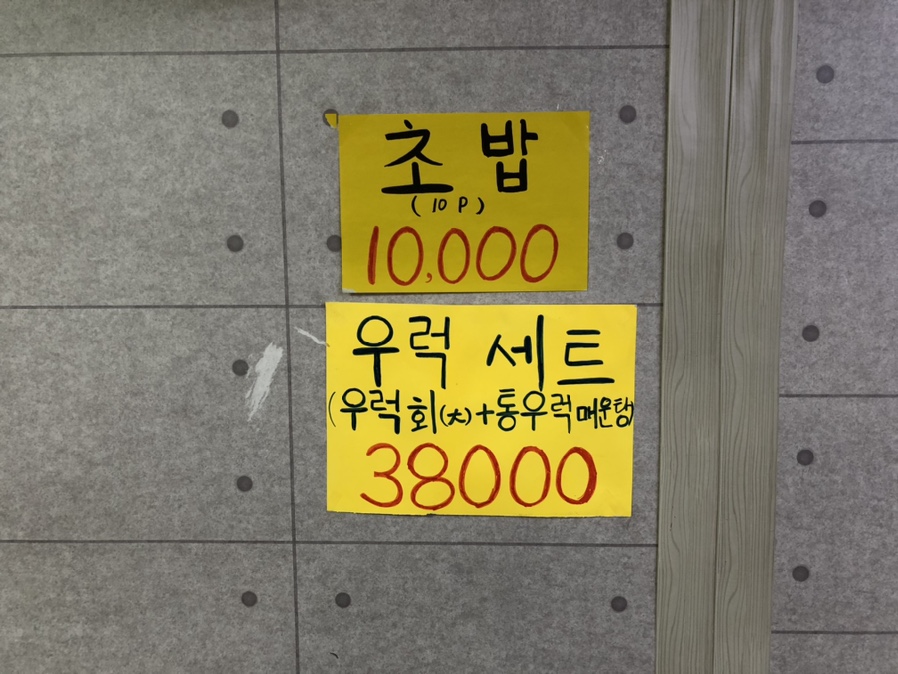 초밥
(10P)
10,000
우럭 세트
(우럭회(大)+통우럭매운탕)
38000